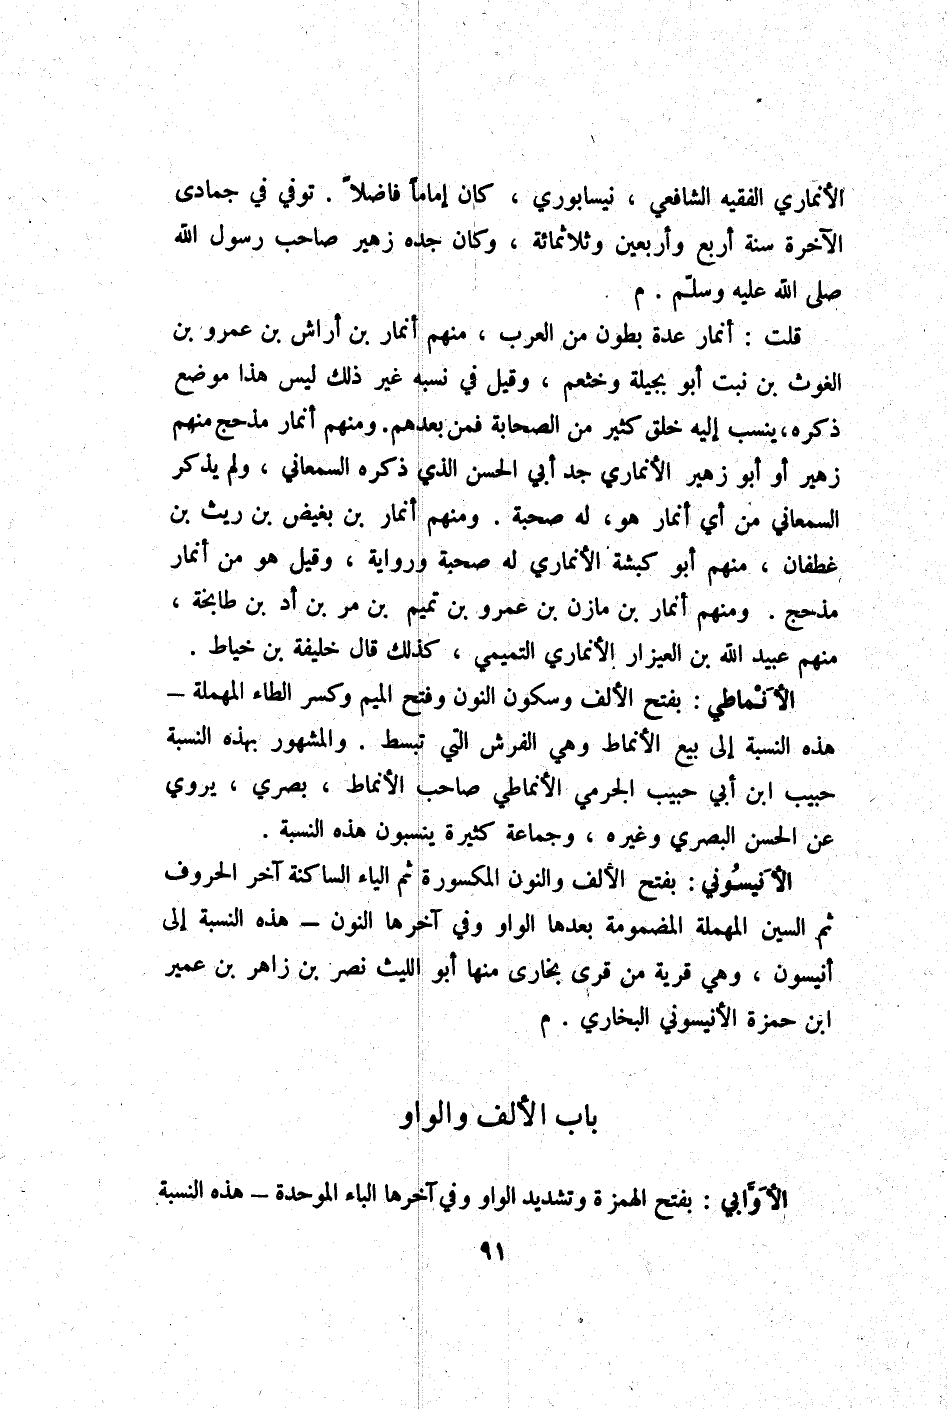 الأنماري الفقيه الشافعي ، نيسابوري ، كان إماماً فاضلاً . توفي في جمادى
الآخرة سنة أربع وأربعين وثلاثمائة ، وكان جده زهير صاحب رسول الله
صلى الله عليه وسلّم . م
قلت : أنمار عدة بطون من العرب ، منهم أنمار بن أراش بن عمرو بن
الغوث بن نبت أبو بجيلة وخثعم ، وقيل في نسبه غير ذلك ليس هذا موضع
ذكره، ينسب إليه خلق كثير من الصحابة فمن بعدهم. ومنهم أنمار مذحج منهم
زهير أو أبو زهير الأنماري جد أبي الحسن الذي ذكره السمعاني ، ولم يذكر
السمعاني من أي أنمار هو، له صحبة . ومنهم أنمار بن بغيض بن ريث بن
غطفان ، منهم أبو كبشة الأنماري له صحبة ورواية ، وقيل هو من أنمار
مذحج . ومنهم أنمار بن مازن بن عمرو بن تميم بن مر بن أد بن طابخة ،
منهم عبيد الله بن العيزار الأنماري التميمي ، كذلك قال خليفة بن خياط .
الأَنْماطي : بفتح الألف وسكون النون وفتح الميم وكسر الطاء المهملة –
هذه النسبة إلى بيع الأنماط وهي الفرش التي تبسط . والمشهور بهذه النسبة
حبيب ابن أبي حبيب الجرمي الأنماطي صاحب الأنماط ، بصري ، يروي
عن الحسن البصري وغيره ، وجماعة كثيرة ينسبون هذه النسبة .
الأَنيسُوني : بفتح الألف والنون المكسورة ثم الياء الساكنة آخر الحروف
ثم السين المهملة المضمومة بعدها الواو وفي آخرها النون – هذه النسبة إلى
أنيسون ، وهي قرية من قرى بخارى منها أبو الليث نصر بن زاهر بن عمير
ابن حمزة الأنيسوني البخاري . م
باب الألف والواو
الأَوَّابي : بفتح الهمزة وتشديد الواو وفي آخرها الباء الموحدة – هذه النسبة
٩١